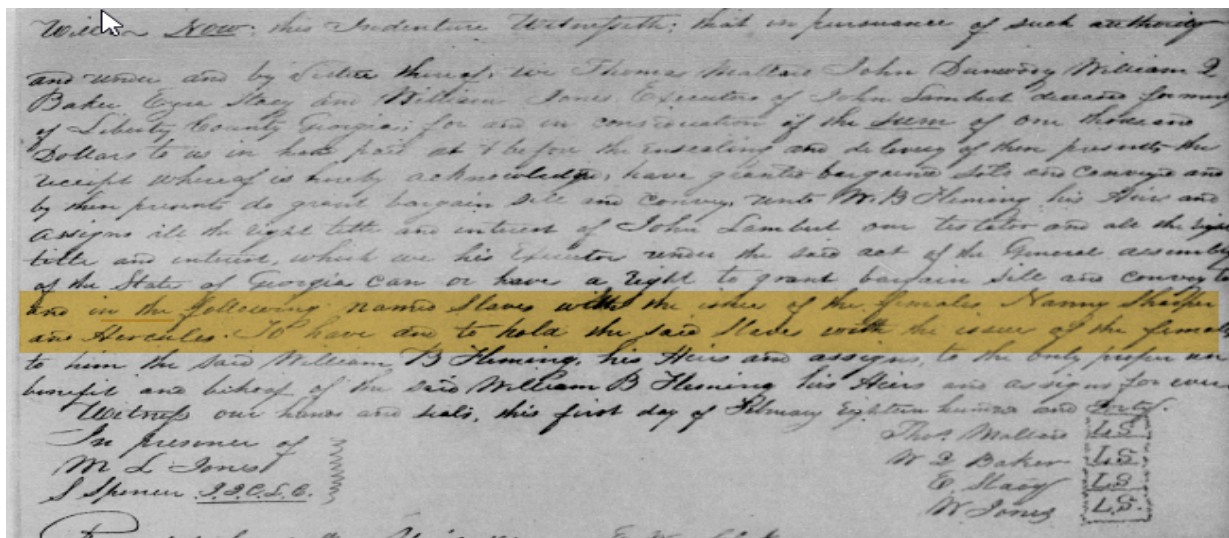 Now this Indenture Witnesseth; that in pursuance of such authority
and under and by virtue thereof, we Thomas Mallard John Dunwody William Q
Baker Ezra Stacy and William Jones, Executors of John Lambert deceased formerly
of Liberty County Georgia; for and in consideration of the sum of one thousand
Dollars to us in hand paid at & before the ensealing and delivery of these presents the
receipt whereof is hereby acknowledge, have granted bargained sold and conveyed and
by these presents do grant bargain sell and convey, unto W. B Fleming his Heirs and
Assigns all the right title and interest of John Lambert our testator and all the right
title and interest, which we his Executors under the said act of the General assembly
of the State of Georgia can or have a right to grant bargain sell and convey
and in the following named Slaves with the issue of the females, Nanny Sharper
and Hercules. To have and to hold the said Slaves with the issue of the females
to him the said William B Fleming, his Heirs and assigns, to the only proper use
benefit and behoof of the said William B Fleming his Heirs and assigns for ever
Witness our hands and seals, this first day of February Eighteen hundred and Forty.
In presence of
M L Jones
S Spencer J.I.C.L.C.
Thos. Mallard L.S.
W Q Baker L.S.
E. Stacy L.S.
W Jones L.S.